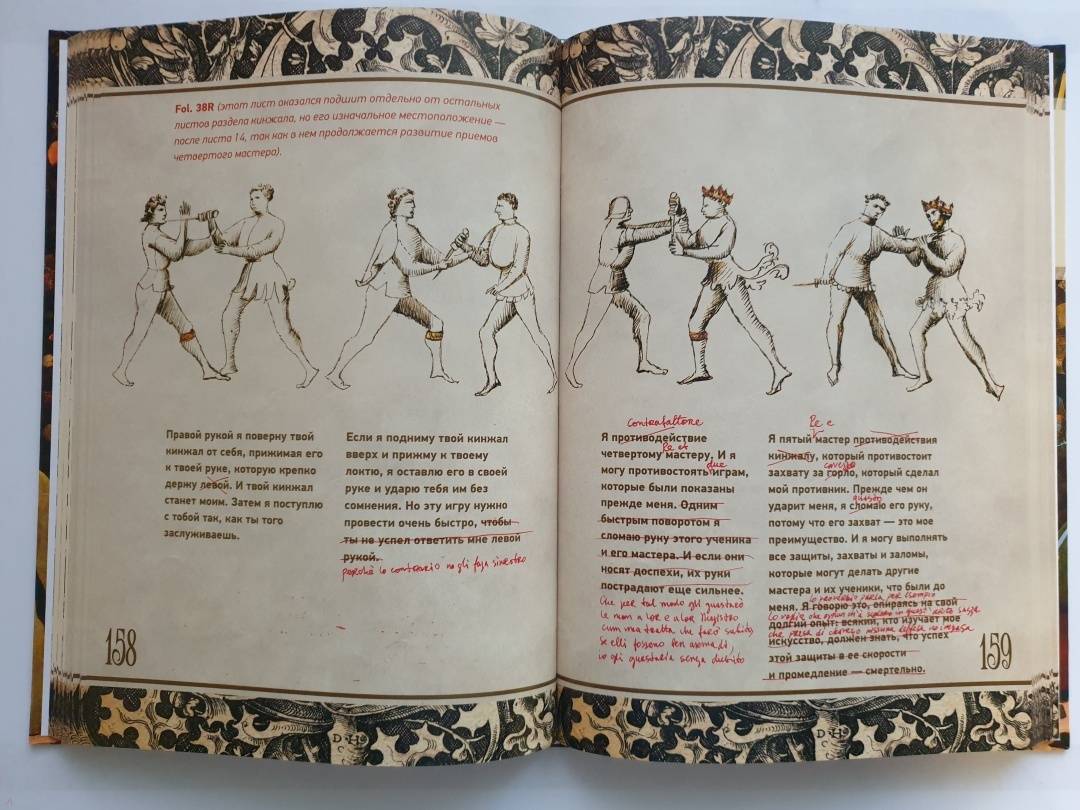 Fol. 38R (этот лист оказался подшит отдельно от остальных
листов раздела кинжала, но его изначальное местоположение —
после листа 14, так как в нем продолжается развитие приемов
четвертого мастера).
Правой рукой я поверну твой
кинжал от себя, прижимая его
к твоей руке, которую крепко
держу левой. И твой кинжал
станет моим. Затем я поступлю
с тобой так, как ты того
заслуживаешь.
Если я подниму твой кинжал
вверх и прижму к твоему
локтю, я оставлю его в своей
руке и ударю тебя им без
сомнения. Но эту игру нужно
провести очень быстро, чтобы
ты не успел ответить мне левой
рукой.
perché lo contrario no gli faza sinestro
158
contrafattore
Я противодействие
Re et
четвертому мастеру. И я
due
могу противостоять играм,
которые были показаны
прежде меня. Одним
быстрым поворотом я
сломаю руку этого ученика
и его мастера. И если они
носят доспехи, их руки
пострадают еще сильнее.
Che per tal modo gli guastarò
la man a lor e a lor Magistro
cum una tratta che farò subito,
se elli fossono ben armadi
io gli guastaria senza dubito
Re e
Я пятый мастер противодействия
кинжалу, который противостоит
захвату за горло, который сделал
мой противник. Прежде чем он
guasto
ударит меня, я сломаю его руку,
потому что его захват — это мое
преимущество. И я могу выполнять
все защиты, захваты и заломы,
которые могут делать другие
мастера и их ученики, что были до
меня. Я говорю это, опираясь на свой
lo proverbio parla per exempio
долгий опыт: всякий, кто изучает мое
искусство, должен знать, что успех
che presa di cavezo nissuna defesa no impaza
этой защиты в ее скорости
и промедление — смертельно.
159
D H
D H